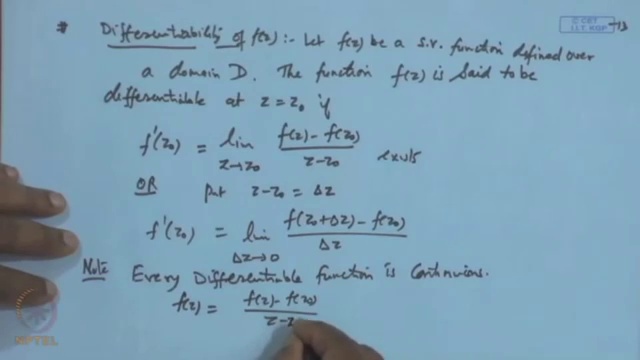 © CET
I.I.T. KGP
# Differentiability of f(z) :- Let f(z) be a s.v. function defined over
a domain D. The function f(z) is said to be
differentiable at z = z₀ if
f'(z₀) = lim z→z₀ f(z) - f(z₀) / z - z₀ exists
OR put z - z₀ = Δz
f'(z₀) = lim Δz→0 f(z₀+Δz) - f(z₀) / Δz
Note Every Differentiable function is continuous.
f(z) = f(z) - f(z₀) / z - z
NPTEL